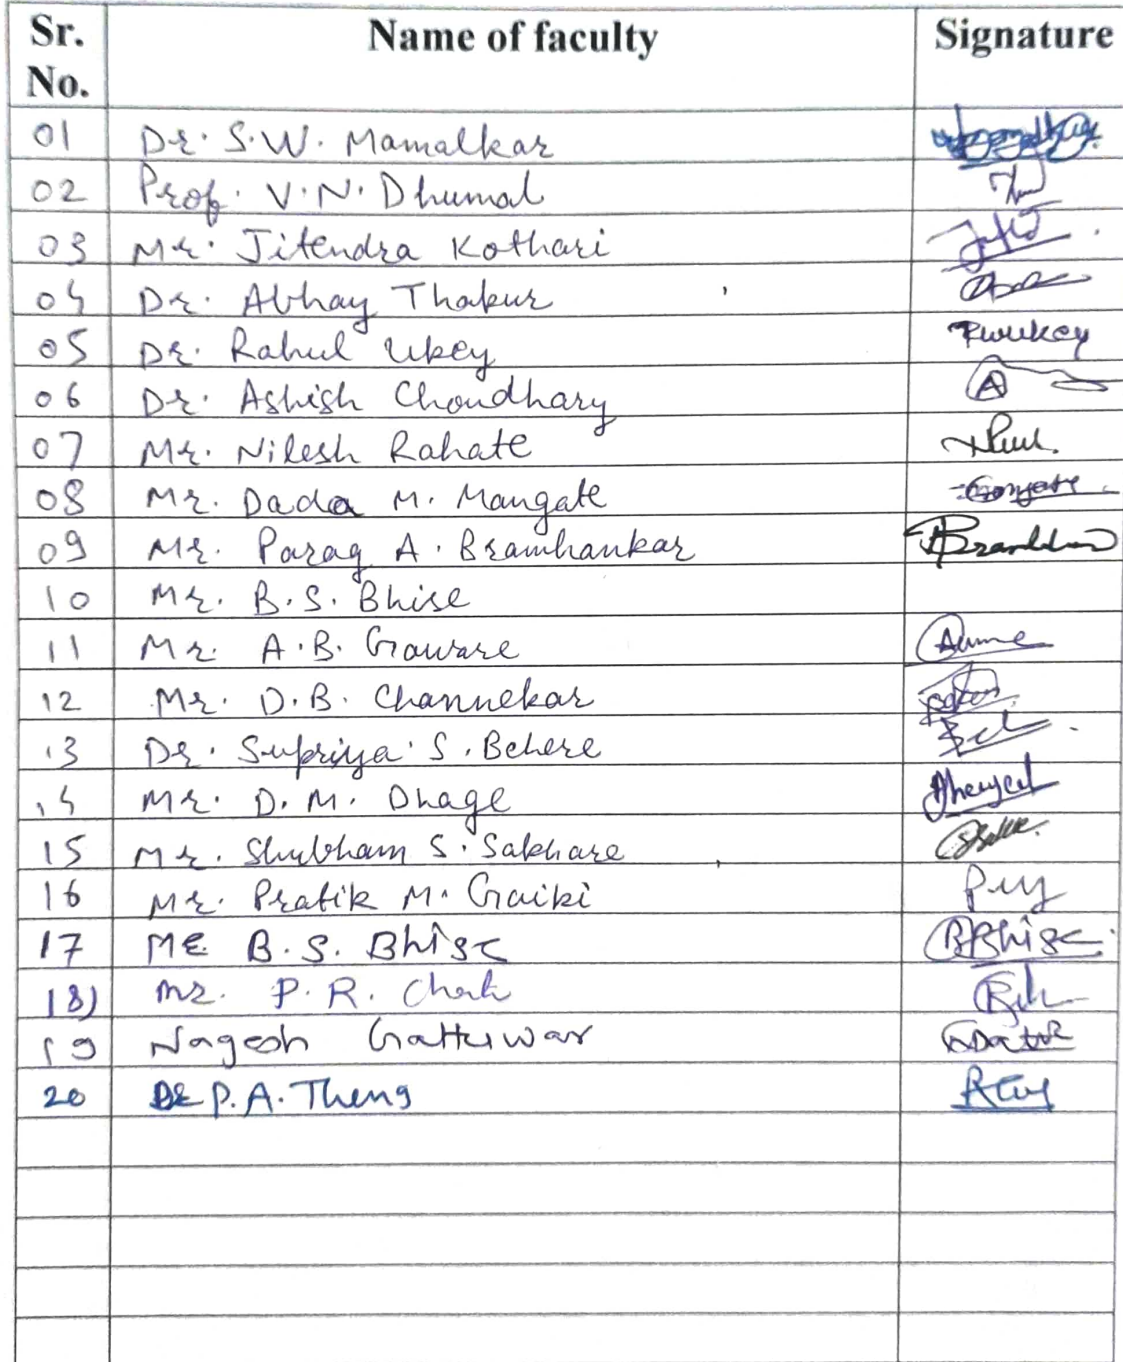 Sr. No. Name of faculty Signature
01 Dr. S.W. Mamalkar
02 Prof. V.N. Dhumal
03 Mr. Jitendra Kothari
04 Dr. Abhay Thakur
05 Dr. Rahul Ukey Rwukey
06 Dr. Ashish Choudhary A
07 Mr. Nilesh Rahate
08 Mr. Dada M. Mangate
09 Mr. Parag A. Bramhankar
10 Mr. B.S. Bhise
11 Mr. A.B. Gaware
12 Mr. D.B. Channekar
13 Dr. Supriya S. Behere
14 Mr. D.M. Dhage
15 Mr. Shubham S. Sakhare
16 Mr. Pratik M. Gaiki
17 Mr. B.S. Bhise BBhise
18) Mr. P.R.
19 Nagesh Gattuwar
20 Dr P.A. Theng